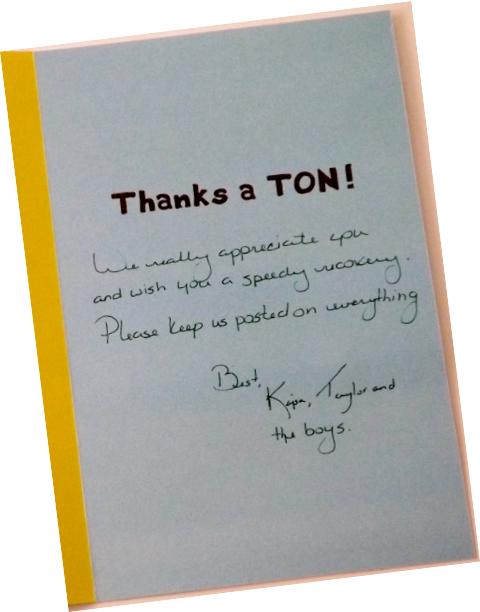 Thanks a TON!
We really appreciate you
and wish you a speedy recovery.
Please keep us posted on everything
Best,
Taylor and
the boys.